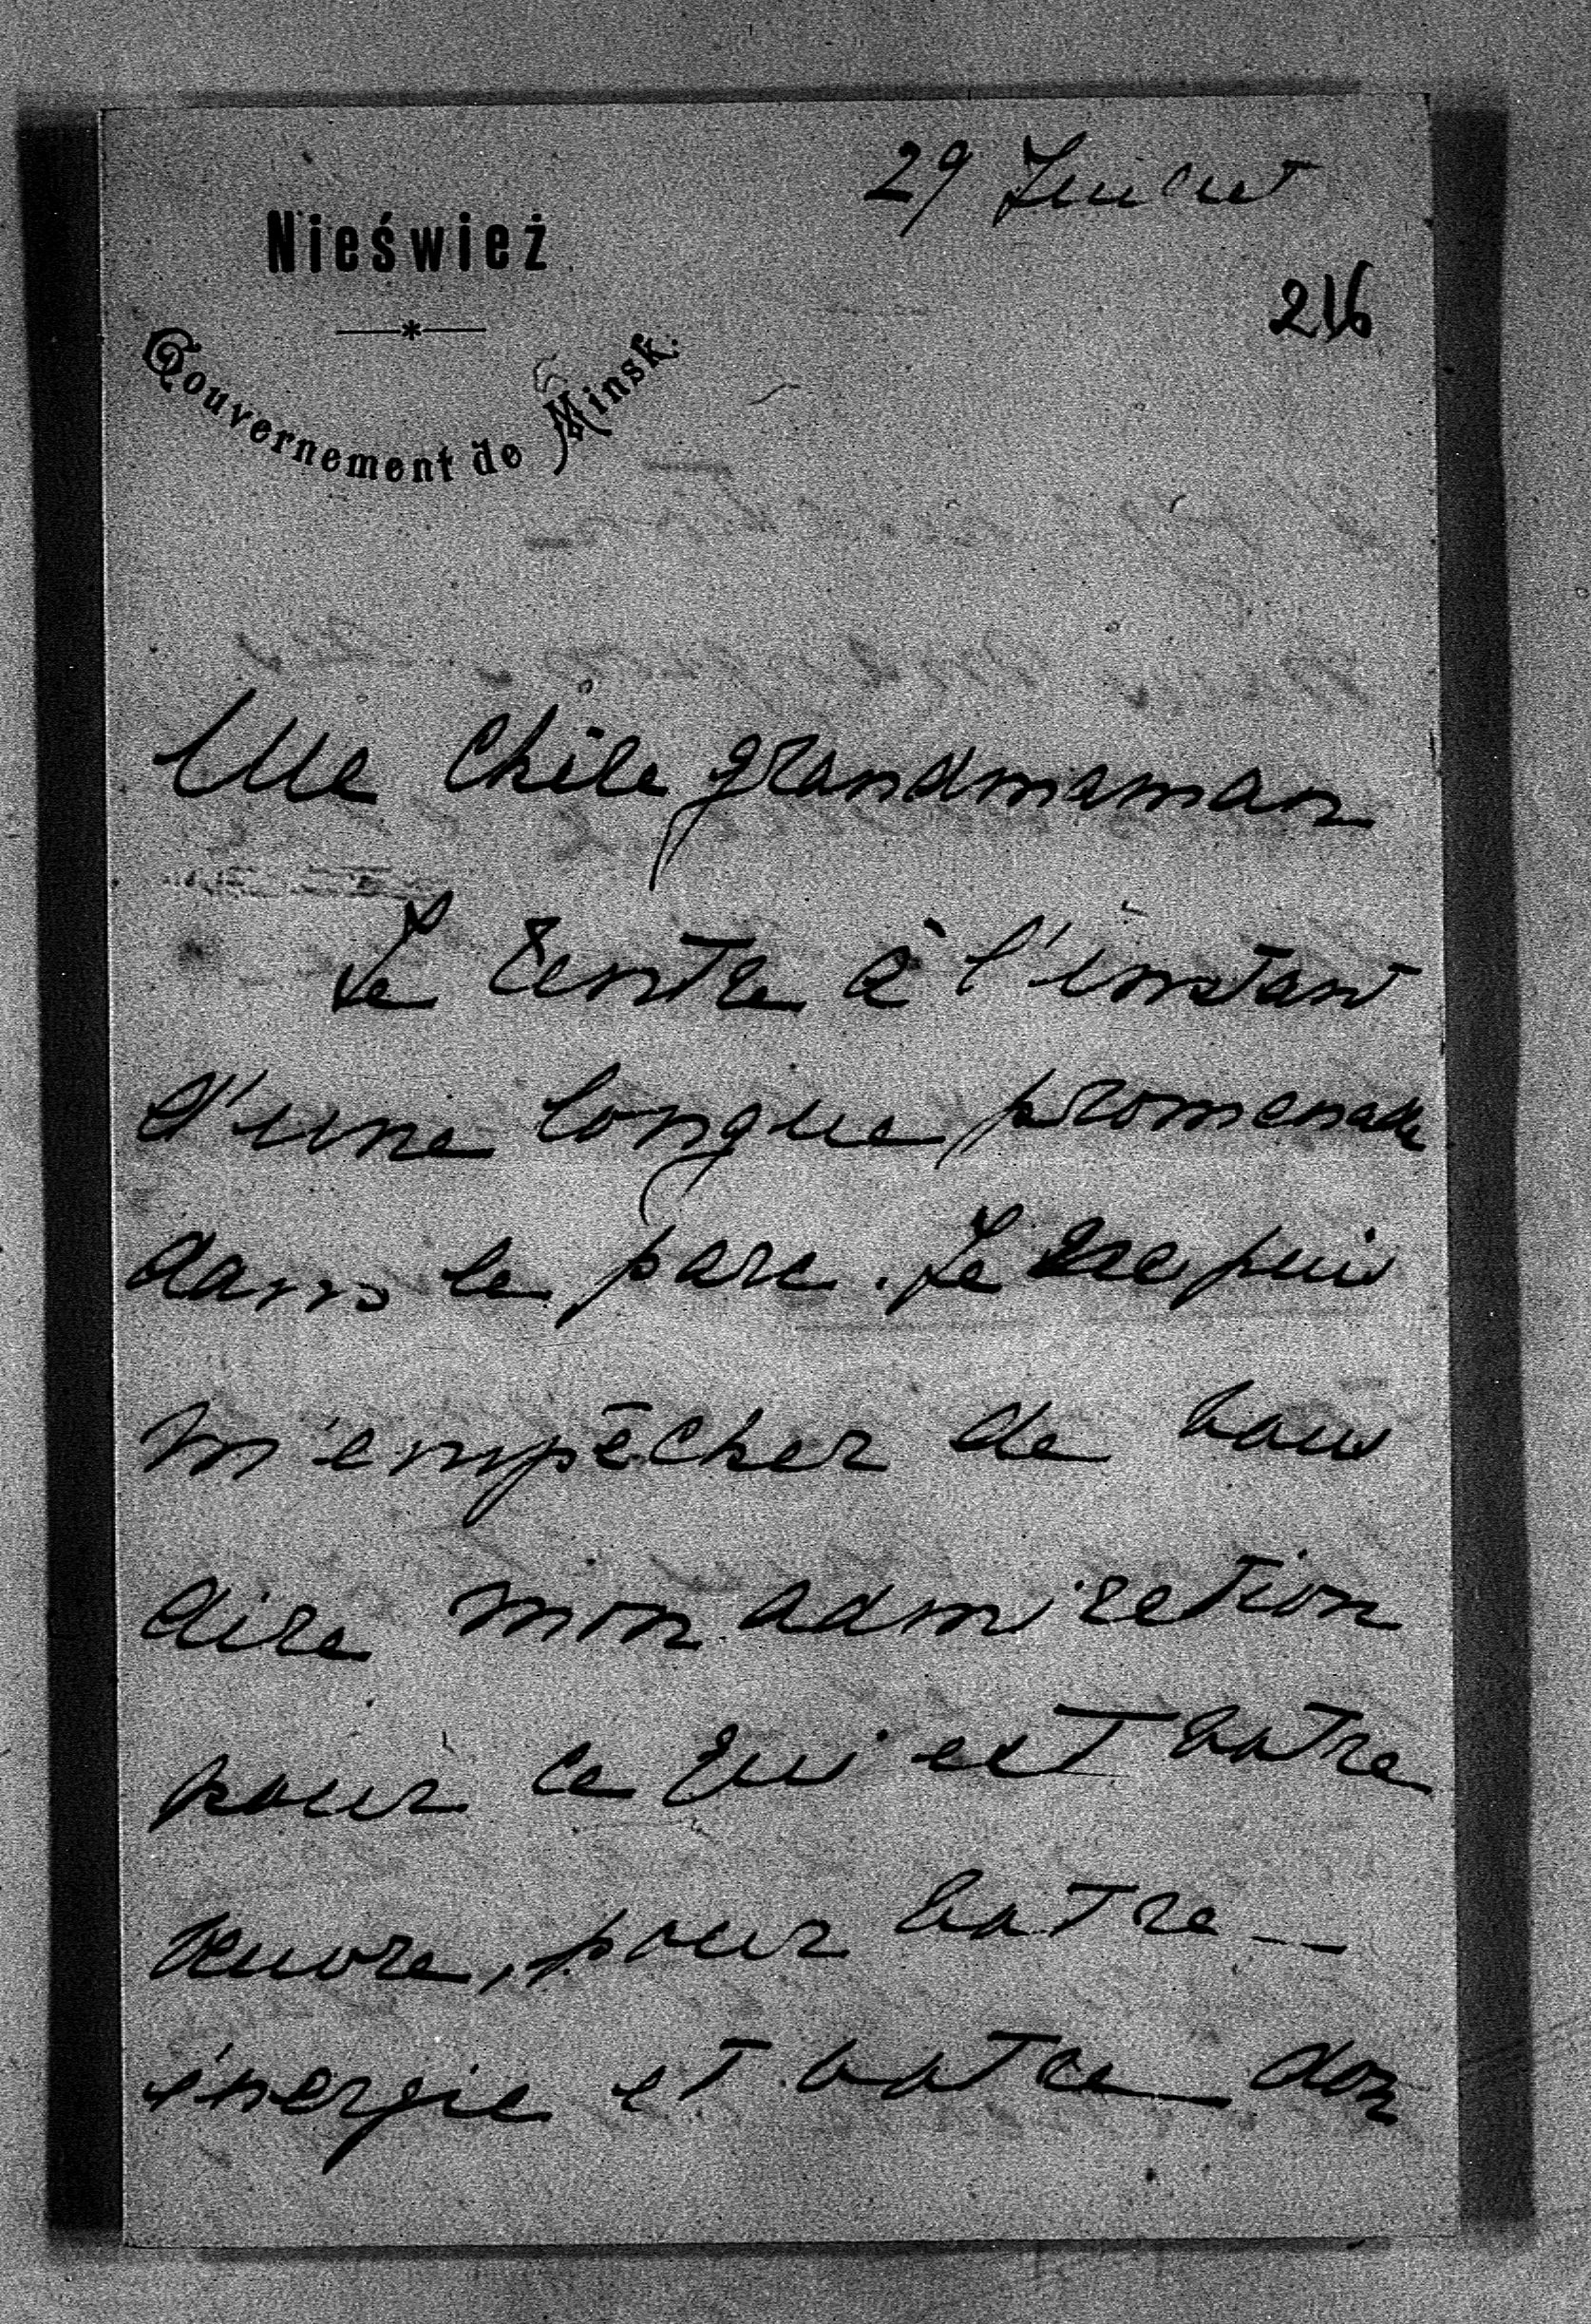 29 Juillet
Nieśwież
216
Gouvernement de Minsk.
Ma chère grandmaman
Je rentre à l'instant
d'une longue promenade
dans le parc. Je ne puis
m'empêcher de vous
dire mon admiration
pour ce qui est votre
œuvre, pour votre
énergie et votre don